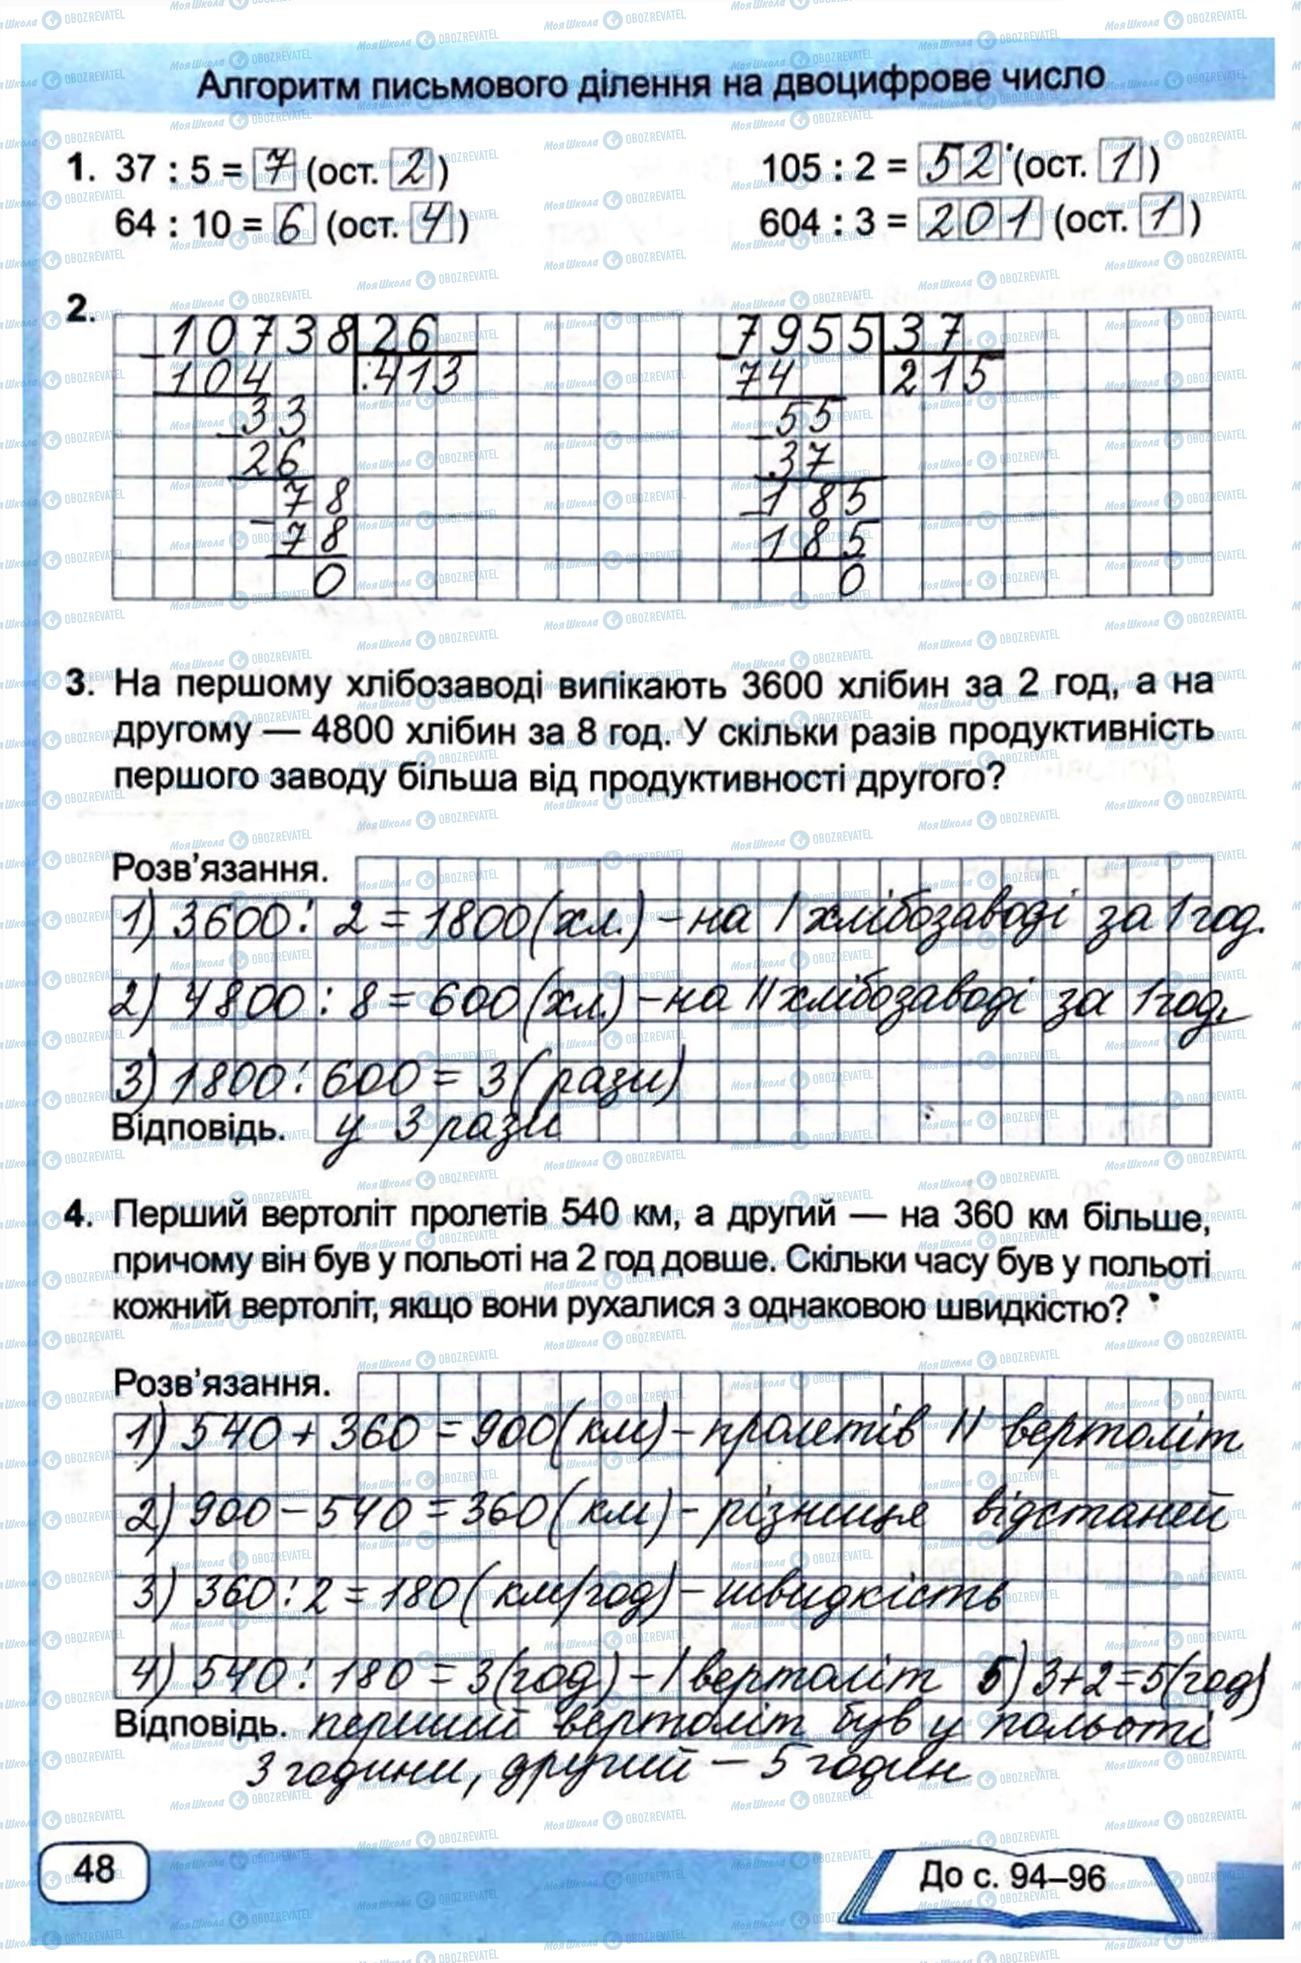 Алгоритм письмового ділення на двоцифрове число
1. 37 : 5 = 7 (ост. 2)
105 : 2 = 52 (ост. 1)
64 : 10 = 6 (ост. 4)
604 : 3 = 201 (ост. 1)
2.
10738 26
104 413
33
26
78
78
0
7955 37
74 215
55
37
185
185
0
3. На першому хлібозаводі випікають 3600 хлібин за 2 год, а на
другому — 4800 хлібин за 8 год. У скільки разів продуктивність
першого заводу більша від продуктивності другого?
Розв'язання.
1) 3600 : 2 = 1800 (хл.) – на I хлібозаводі за 1 год.
2) 4800 : 8 = 600 (хл.) – на II хлібозаводі за 1 год.
3) 1800 : 600 = 3 (рази)
Відповідь. у 3 рази
4. Перший вертоліт пролетів 540 км, а другий — на 360 км більше,
причому він був у польоті на 2 год довше. Скільки часу був у польоті
кожний вертоліт, якщо вони рухалися з однаковою швидкістю?
Розв'язання.
1) 540 + 360 = 900 (км) – пролетів II вертоліт
2) 900 – 540 = 360 (км) – різниця відстаней
3) 360 : 2 = 180 (км/год) – швидкість
4) 540 : 180 = 3 (год) – I вертоліт 5) 3 + 2 = 5 (год)
Відповідь. перший вертоліт був у польоті
3 години, другий – 5 годин
48
До с. 94–96
МояШкола OBOZREVATEL